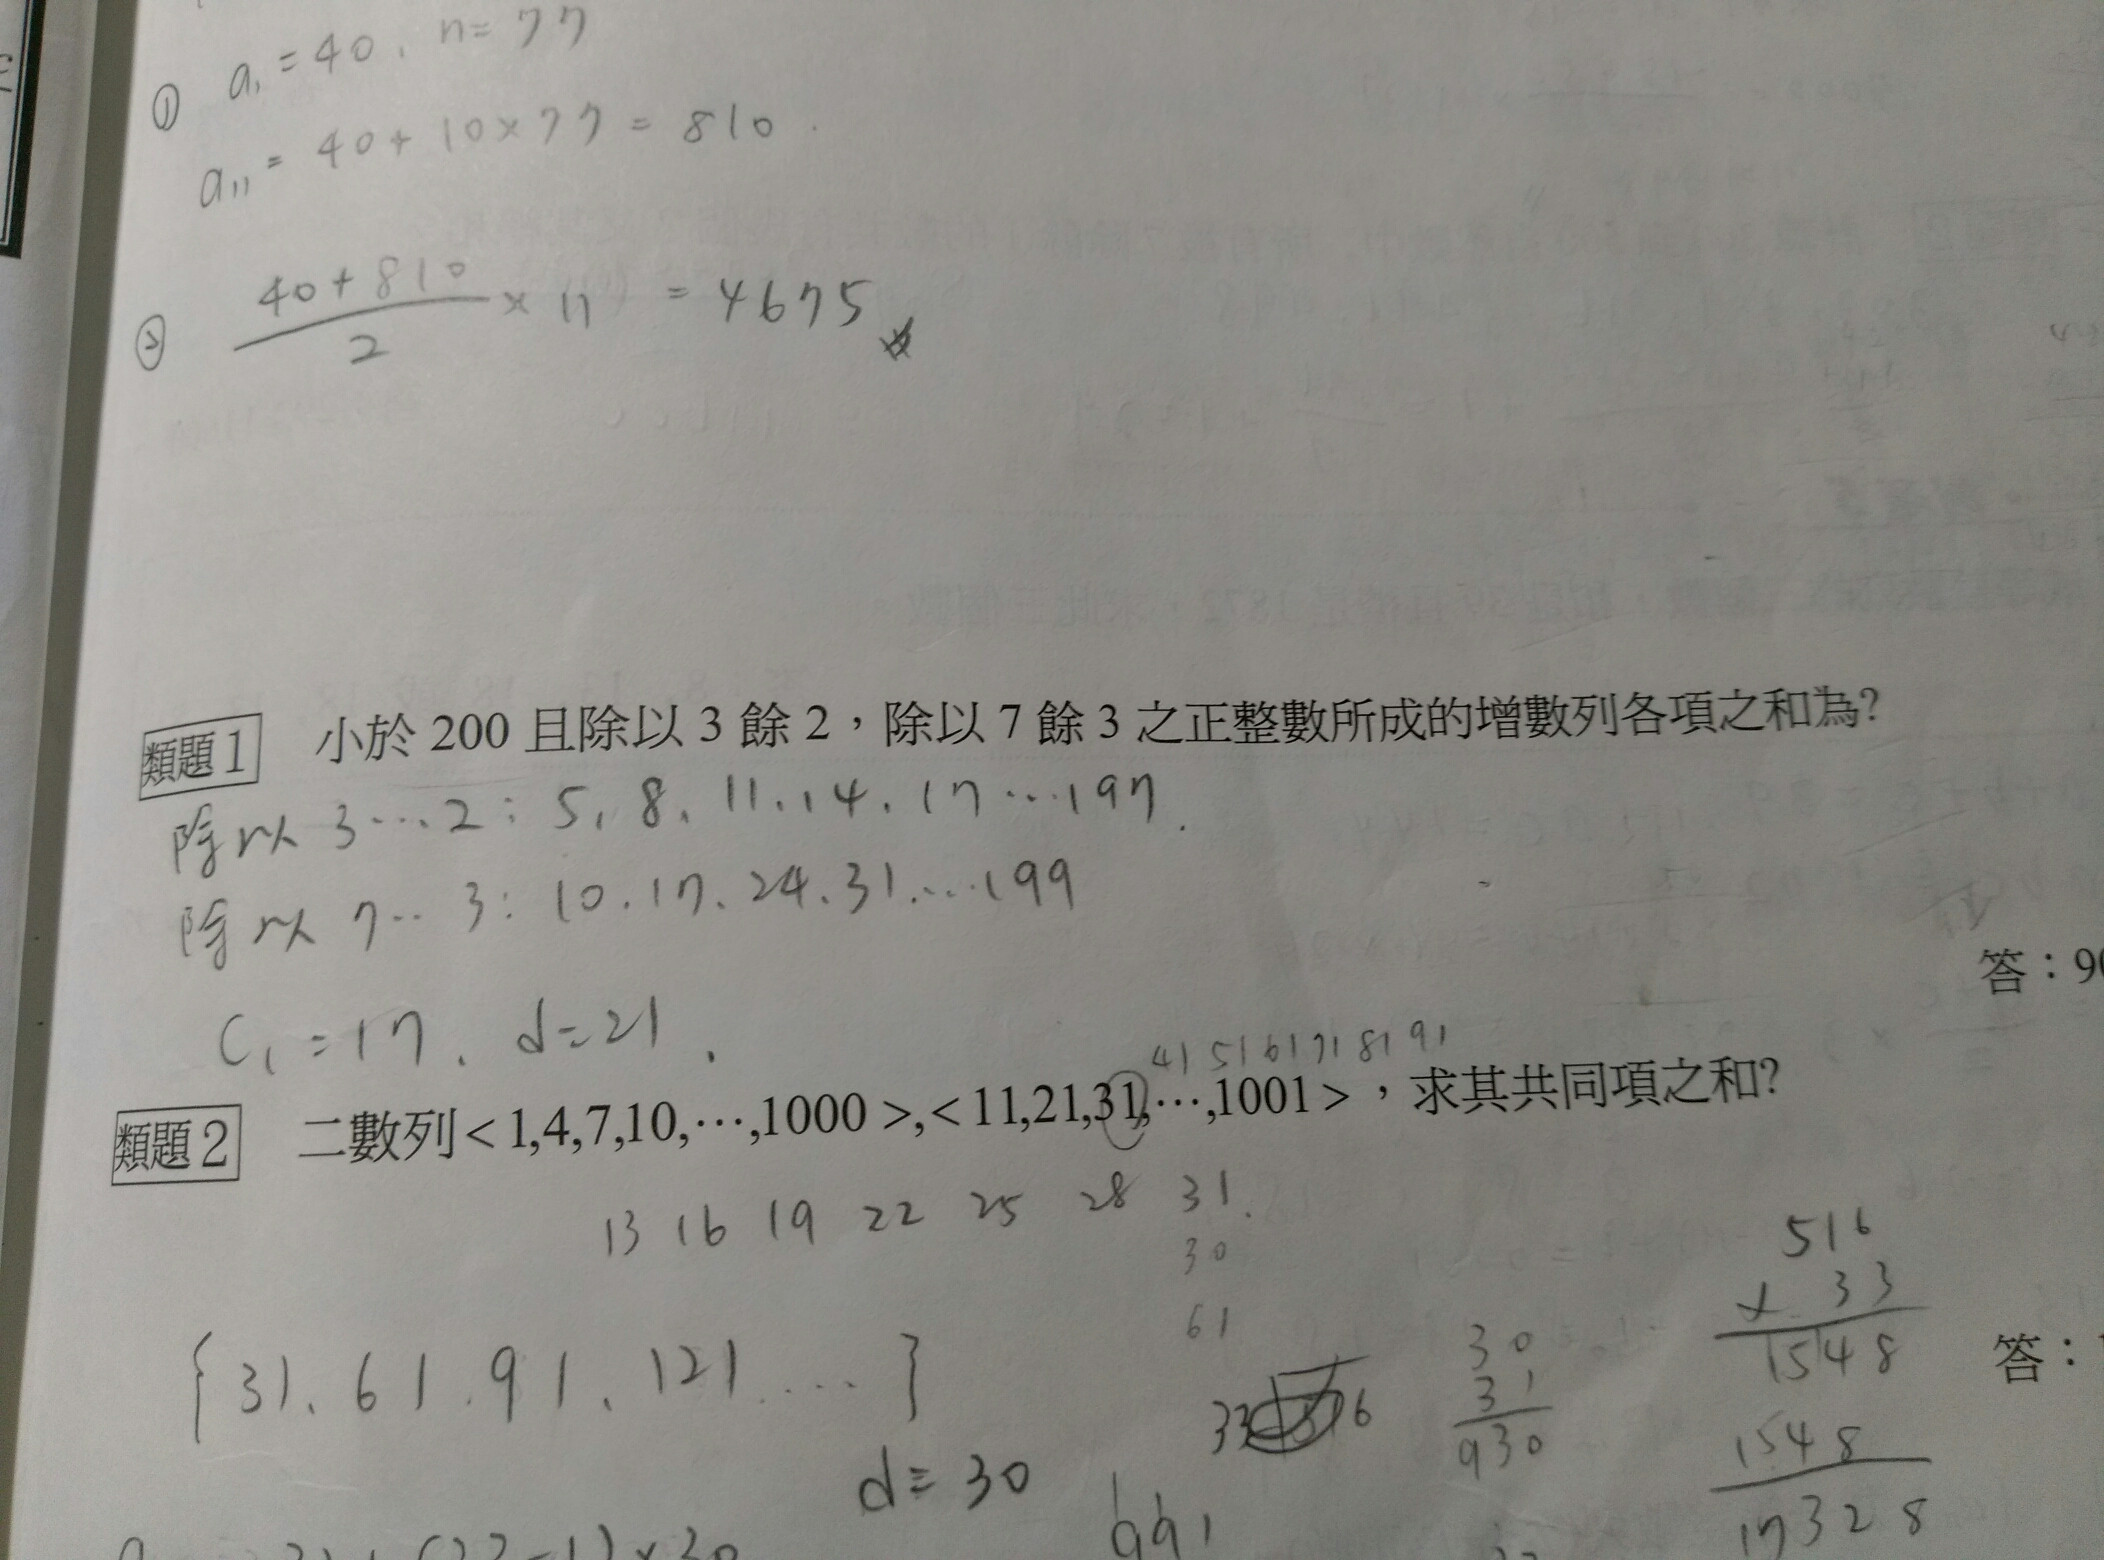 ① a₁ = 40, n = 77
a₁₁ = 40 + 10 × 77 = 810
② (40 + 810)/2 × 11 = 4675
類題1 小於 200 且除以 3 餘 2，除以 7 餘 3 之正整數所成的增數列各項之和為?
除以 3…2: 5, 8, 11, 14, 17 … 197.
除以 7…3: 10. 17. 24. 31. … 199
答：90
C₁ = 17, d = 21.
41 51 61 71 81 91
類題2 二數列 < 1,4,7,10,…,1000 >,< 11,21,31,…,1001 >，求其共同項之和?
13 16 19 22 25 28 31.
30
61
{ 31. 61. 91. 121 .... }
d = 30
33
6
30
31
930
516
× 33
1548
1548
17328
答：
991